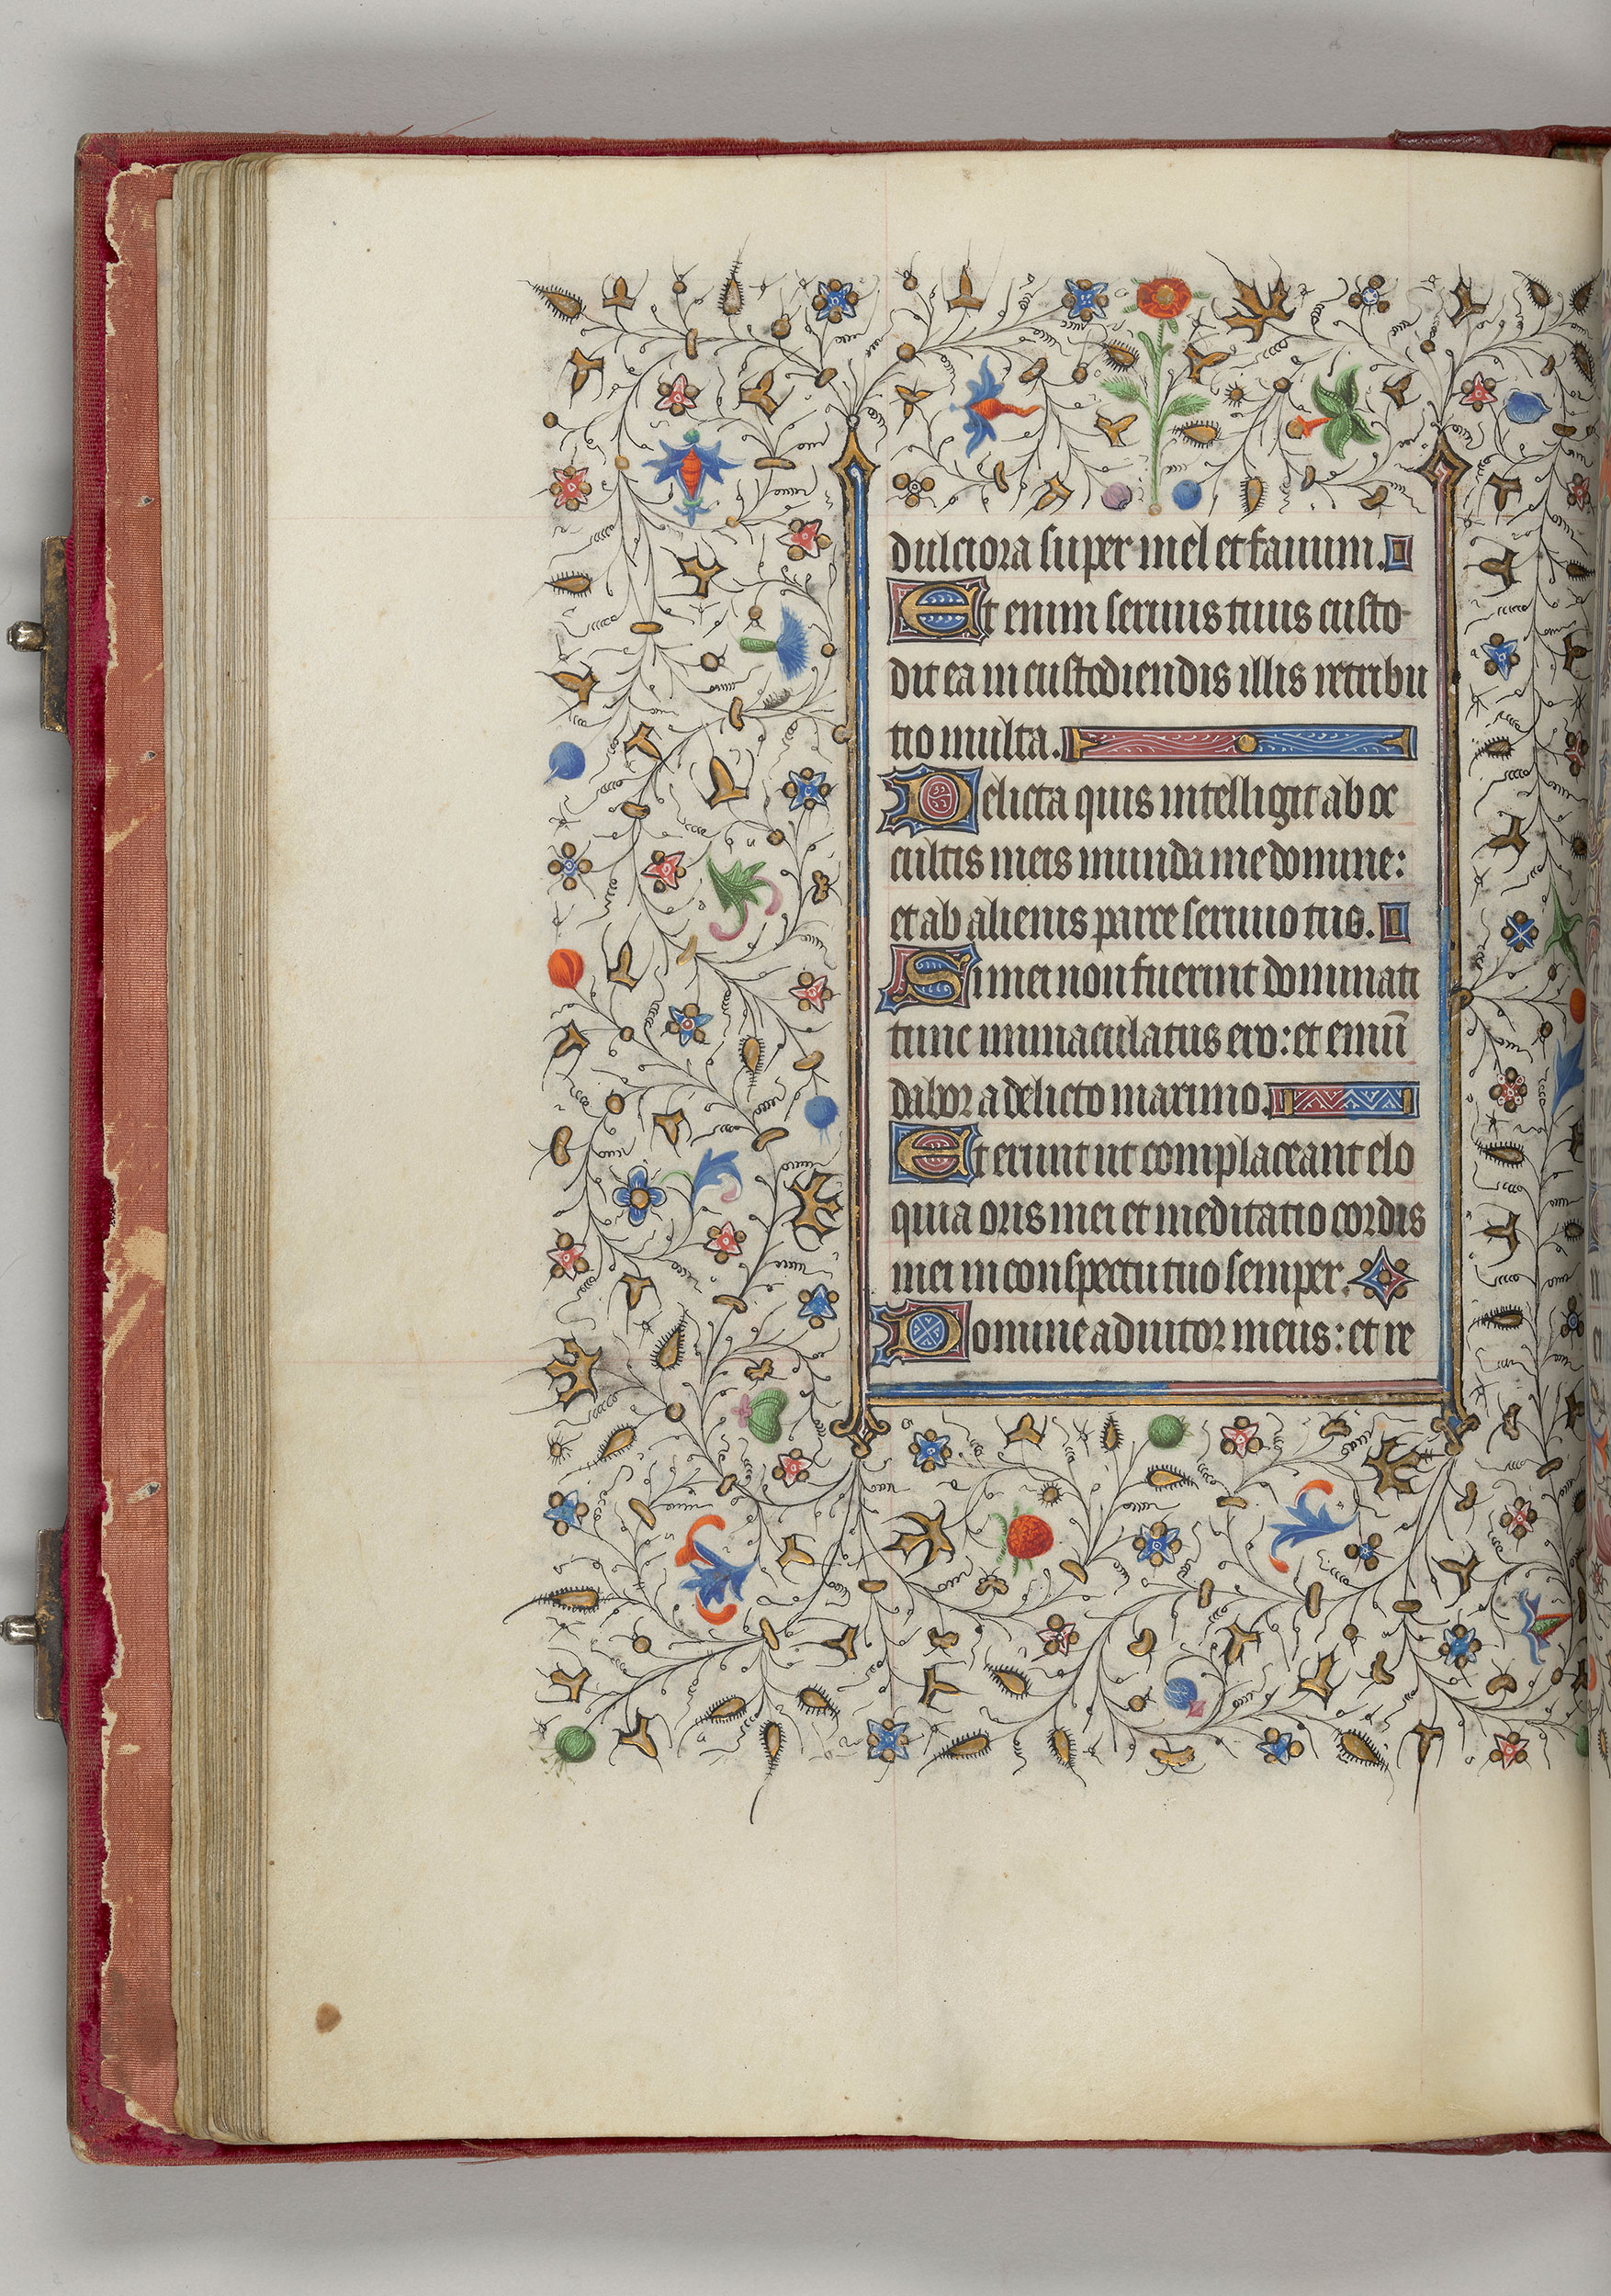 dulciora super mel et fauum.
Et enim seruus tuus custo
dit ea in custodiendis illis retribu
tio multa.
Delicta quis intelligit ab oc
cultis meis munda me domine:
et ab alienis parce seruuo tuo.
Si mei non fuerint dominati
tunc inmaculatus ero: et emū
dabor a delicto maximo.
Et erunt ut complaceant elo
quia oris mei et meditatio cordis
mei in conspectu tuo semper.
Domine adiutor meus: et re